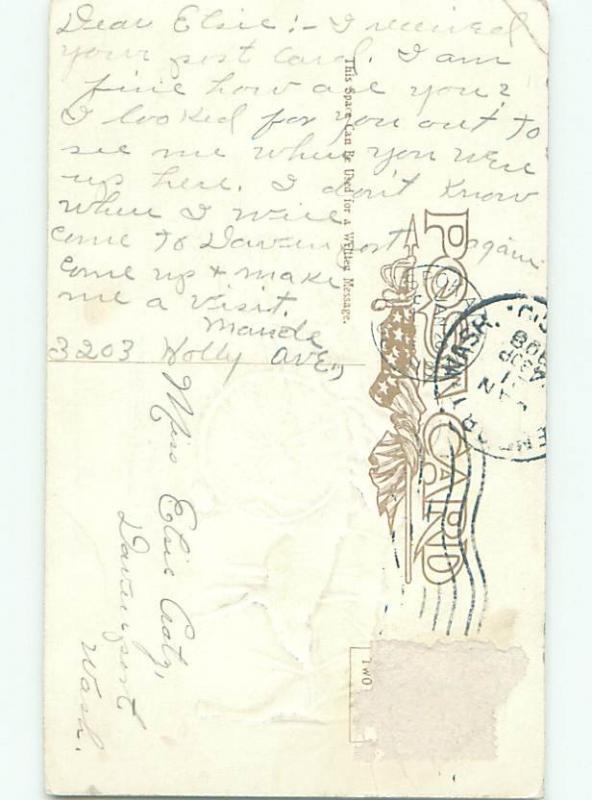 Dear Elsie:- I received
your post card. I am
fine how are you?
I looked for you out to
see me when you were
up here. I don't know
when I will
come to Davenport again
come up + make
me a visit.
Maude
3203 Holly Ave,
This Space Can Be Used for A Written Message.
POST CARD
Miss Elsie
Davenport
Wash.
WASH.
JAN
1908
TWO